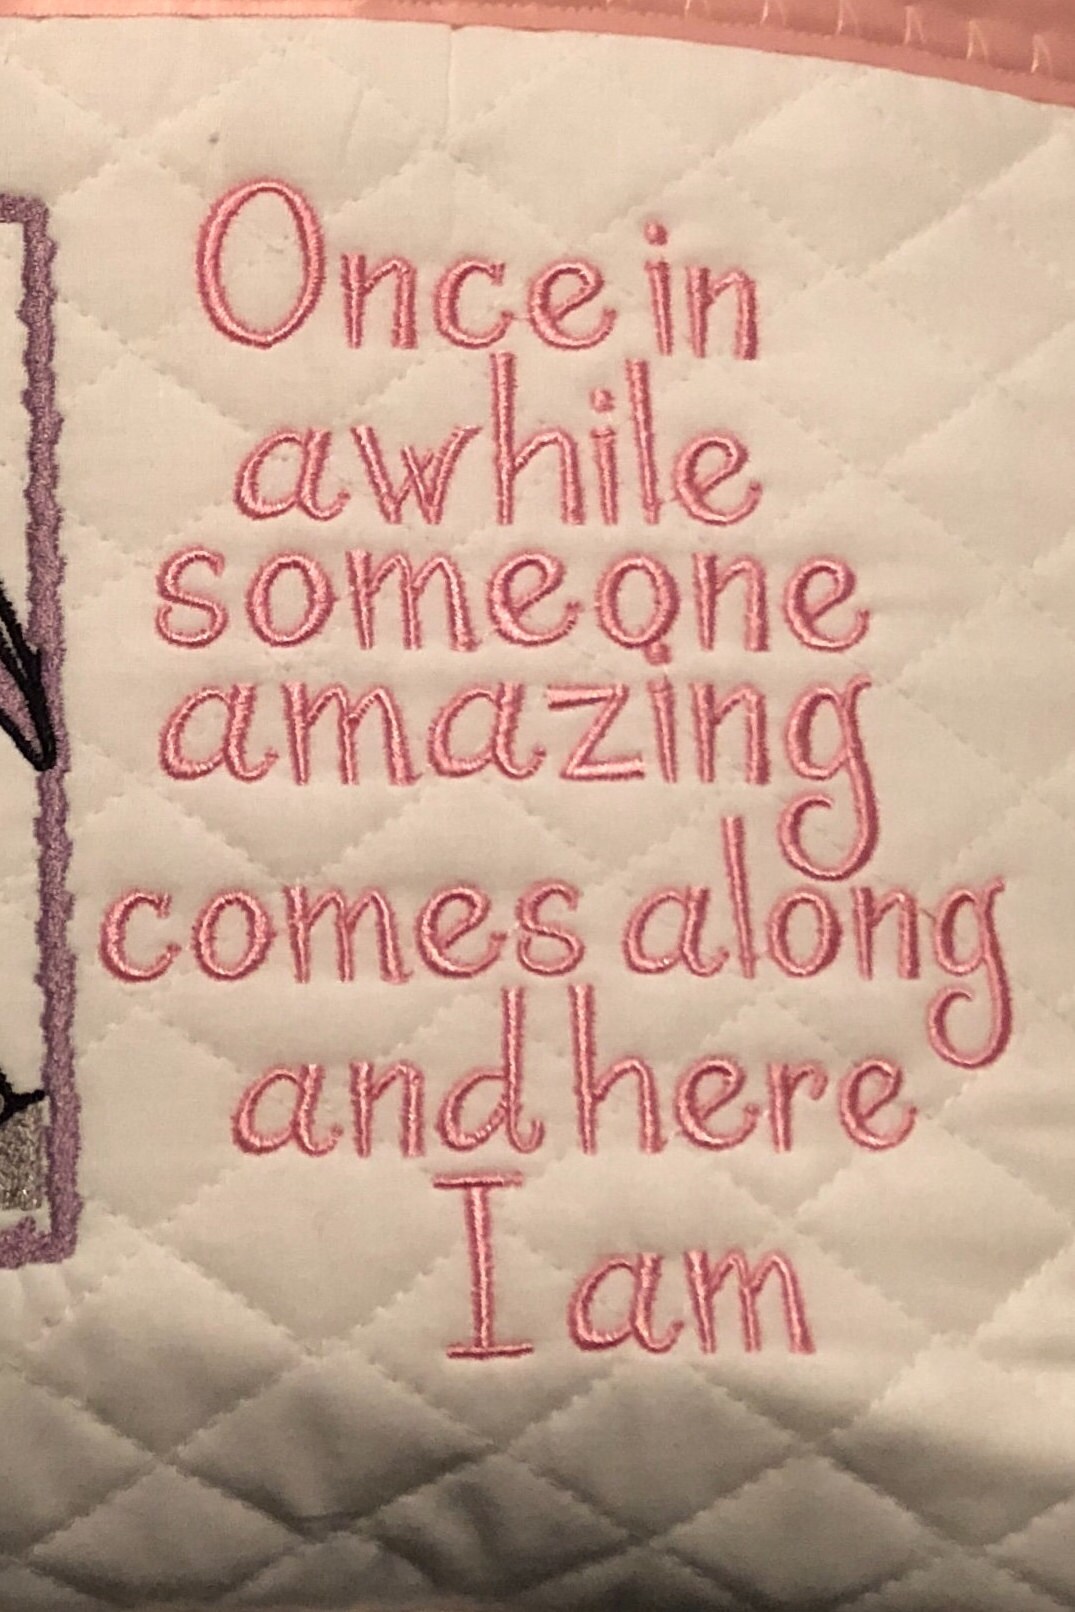 Once in
awhile
someone
amazing
comes along
and here
I am